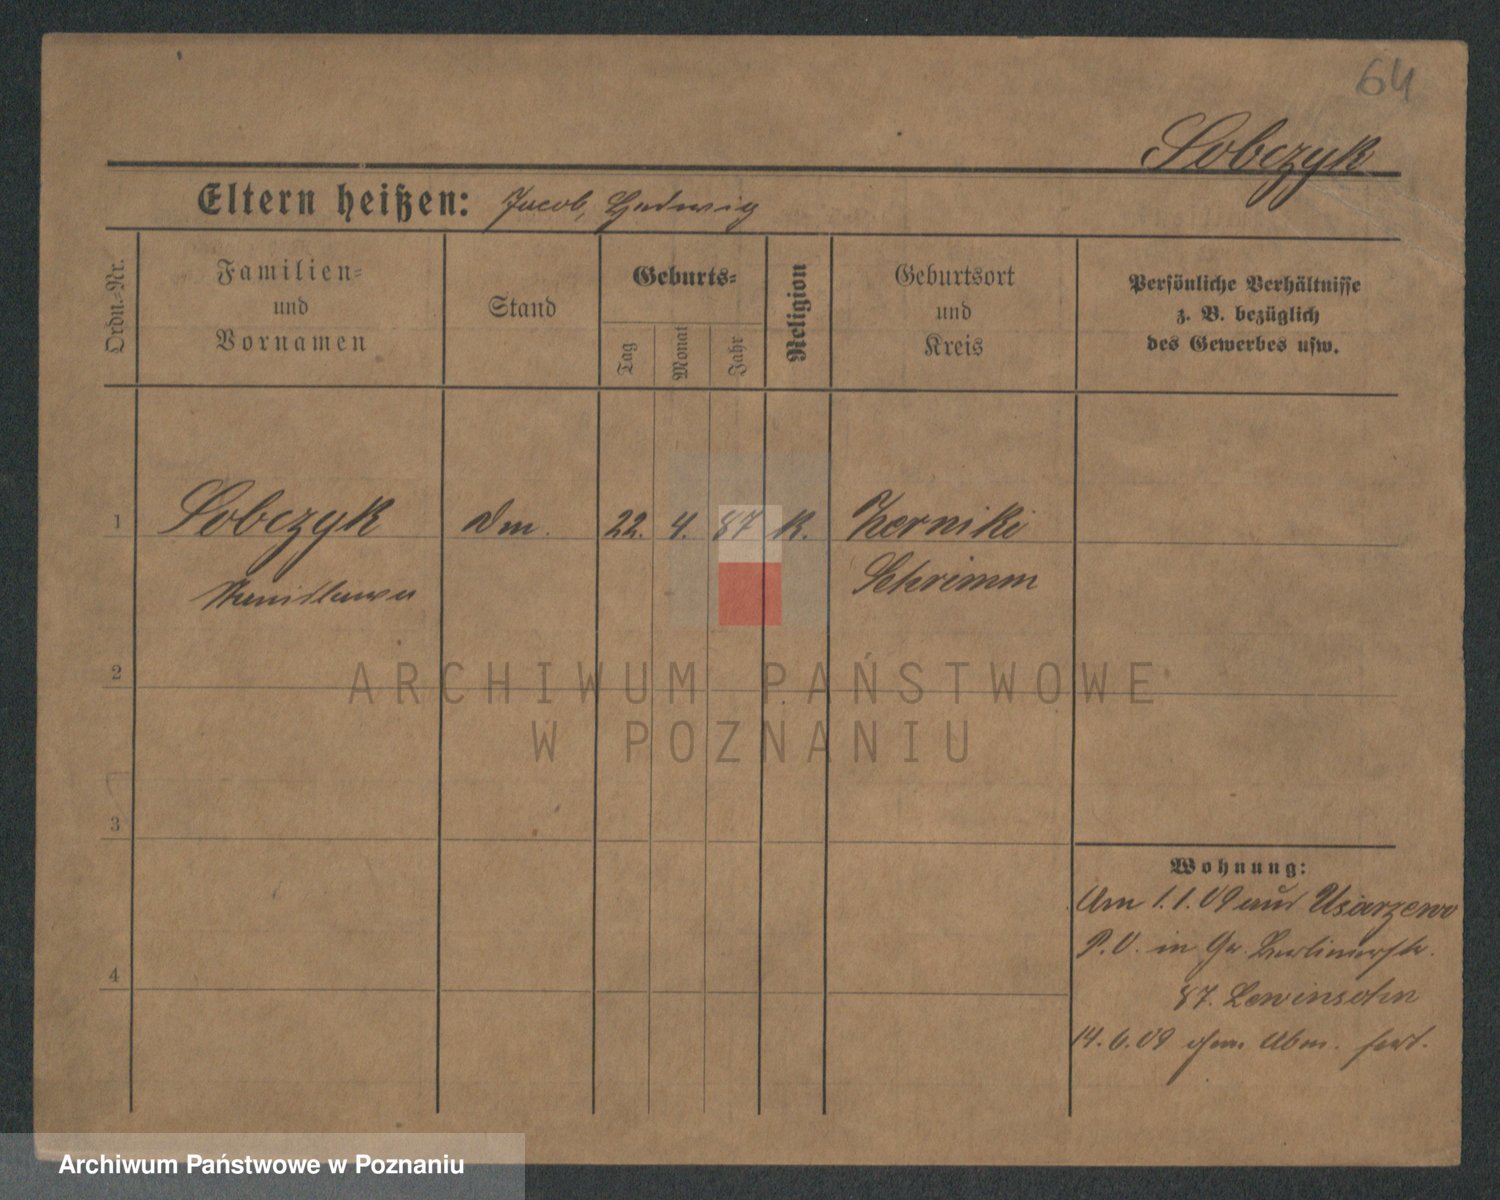 64
Sobczyk
Eltern heißen: Jacob, Hedwig
Ordn.-Nr.
Familien-
und
Vornamen
Stand
Geburts-
Tag
Monat
Jahr
Religion
Geburtsort
und
Kreis
Persönliche Verhältnisse
z. B. bezüglich
des Gewerbes usw.
1
Sobczyk
Stanislawa
Dm.
22. 4. 87
K.
Zerniki
Schrimm
2
ARCHIWUM PAŃSTWOWE
W POZNANIU
3
Wohnung:
Am 1.1.09 aus Usarzewo
P.O. in Gr. Berlinerstr.
87. Lewinsohn
4
14.6.09 ohne Abm. fort.
Archiwum Państwowe w Poznaniu